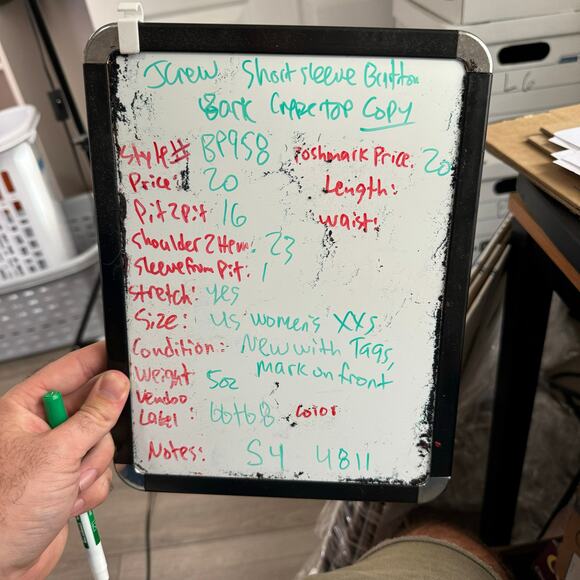 JCrew Short sleeve Button
Bark Crop Top Copy
Style# BP958 Poshmark Price: 20
Price: 20 Length:
Pit2pit 16 Waist:
Shoulder2Hem: 23
Sleeve from Pit: 1
Stretch: yes
Size: US women's XXS
Condition: New with Tags,
mark on front
Weight 5oz
Vendoo
Label: Color
Notes: S4 4811
L6